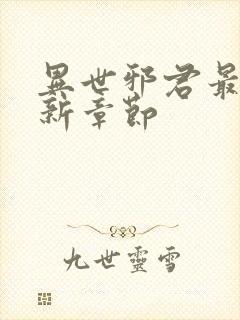 異世邪君最
新章節
九世靈雪